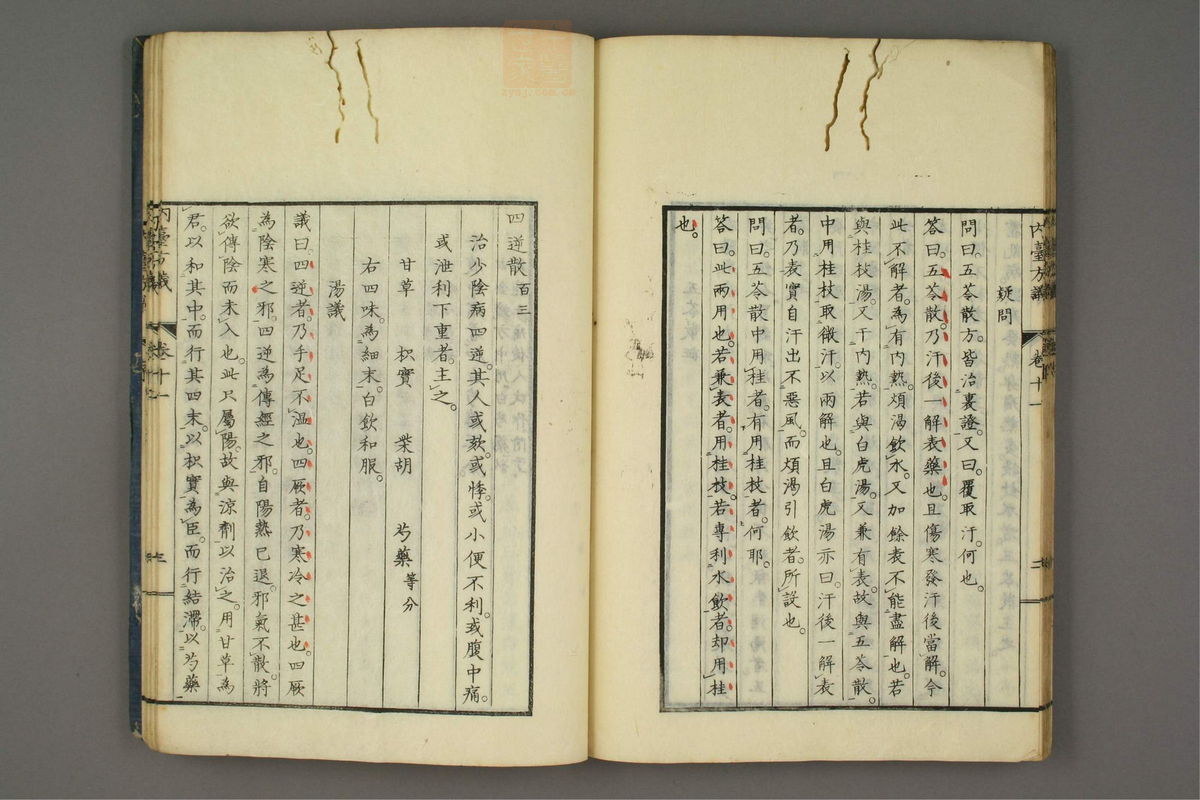 內臺方議 卷十一 二
疑問
問曰。五苓散方。皆治裏證。又曰。覆取汗。何也。
答曰。五苓散。乃汗後一解表藥也。且傷寒發汗後當解。今
此不解者。為有內熱。煩渴飲水。又加餘表不能盡解也。若
與桂枝湯。又干內熱。若與白虎湯。又兼有表。故與五苓散。
中用桂枝取微汗。以兩解也。且白虎湯亦曰。汗後一解表
者。乃表實自汗出不惡風。而煩渴引飲者。所設也。
問曰。五苓散中用桂者。有用桂枝者。何耶。
答曰。此兩用也。若兼表者。用桂枝。若專利水飲者。却用桂
也。
四逆散 百三
治少陰病四逆。其人或欬。或悸。或小便不利。或腹中痛。
或泄利下重者。主之。
甘草 枳實 柴胡 芍藥 等分
右四味。為細末。白飲和服。
湯議
議曰。四逆者。乃手足不溫也。四厥者。乃寒冷之甚也。四厥
為陰寒之邪。四逆為傳經之邪。自陽熱已退。邪氣不散。將
欲傳陰而未入也。此只屬陽。故與涼劑以治之。用甘草為
君。以和其中。而行其四末。以枳實為臣。而行結滯。以芍藥
內臺方議 卷十一